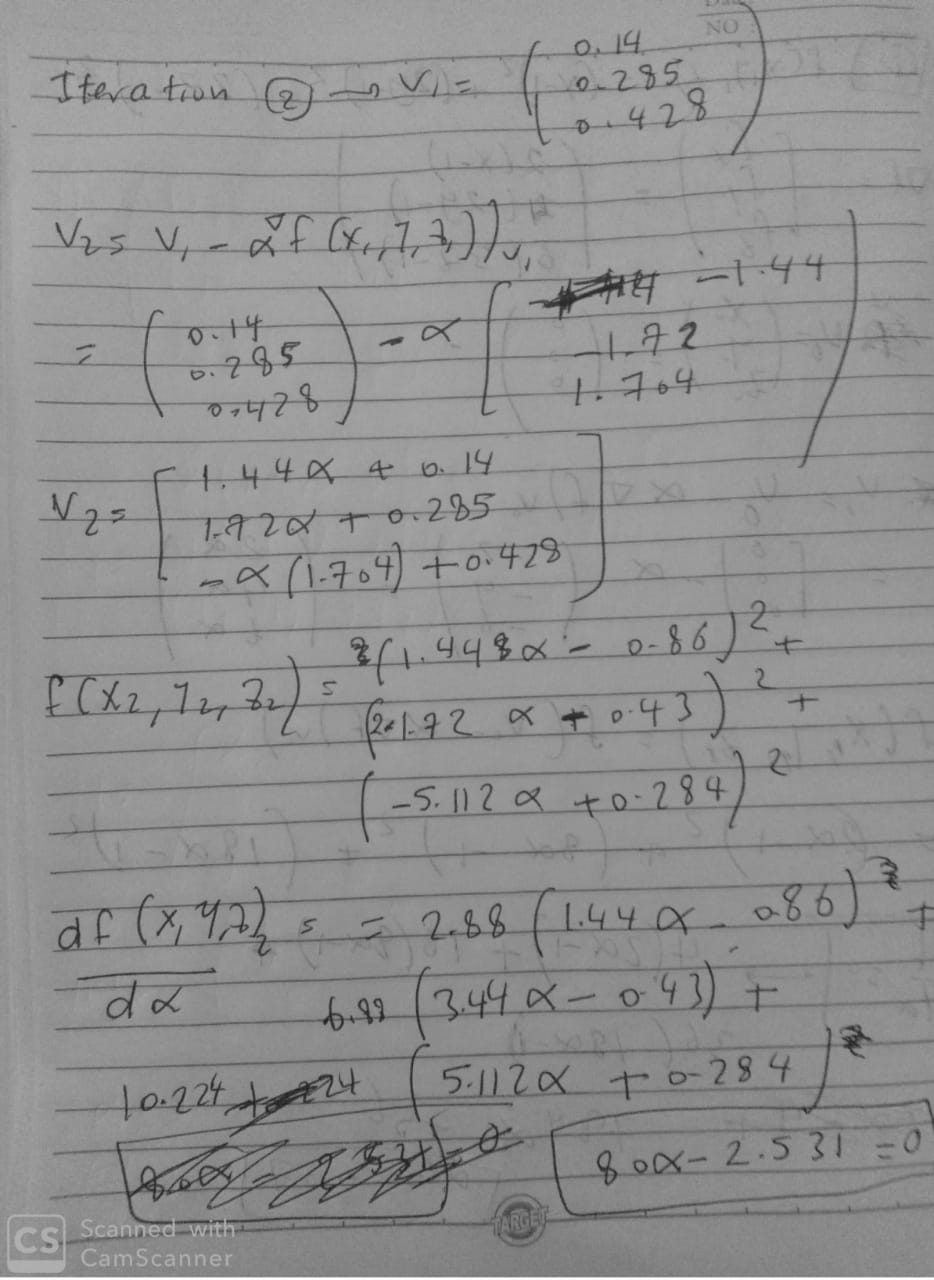 NO
Iteration ② → V₁ = ( 0.14
0.285
0.428 )
V₂ = V₁ - α∇f (x₁, y, z₁))v₁
= ( 0.14
0.285
0.428 ) - α [ -1.44
-1.72
1.704 ]
V₂ = [ 1.44α + 0.14
1.72α + 0.285
-α (1.704) + 0.428 ]
f(x₂, y₂, z₂) = (1.44α - 0.86)² +
(2*1.72 α + 0.43)² +
(-5.112α + 0.284)²
df (x, y, z)₂ = = 2.88 (1.44α - 0.86) +
dα 6.88 (3.44α - 0.43) +
10.224 (5.112α + 0.284)
80α - 2.531 = 0
TARGET
CS Scanned with
CamScanner